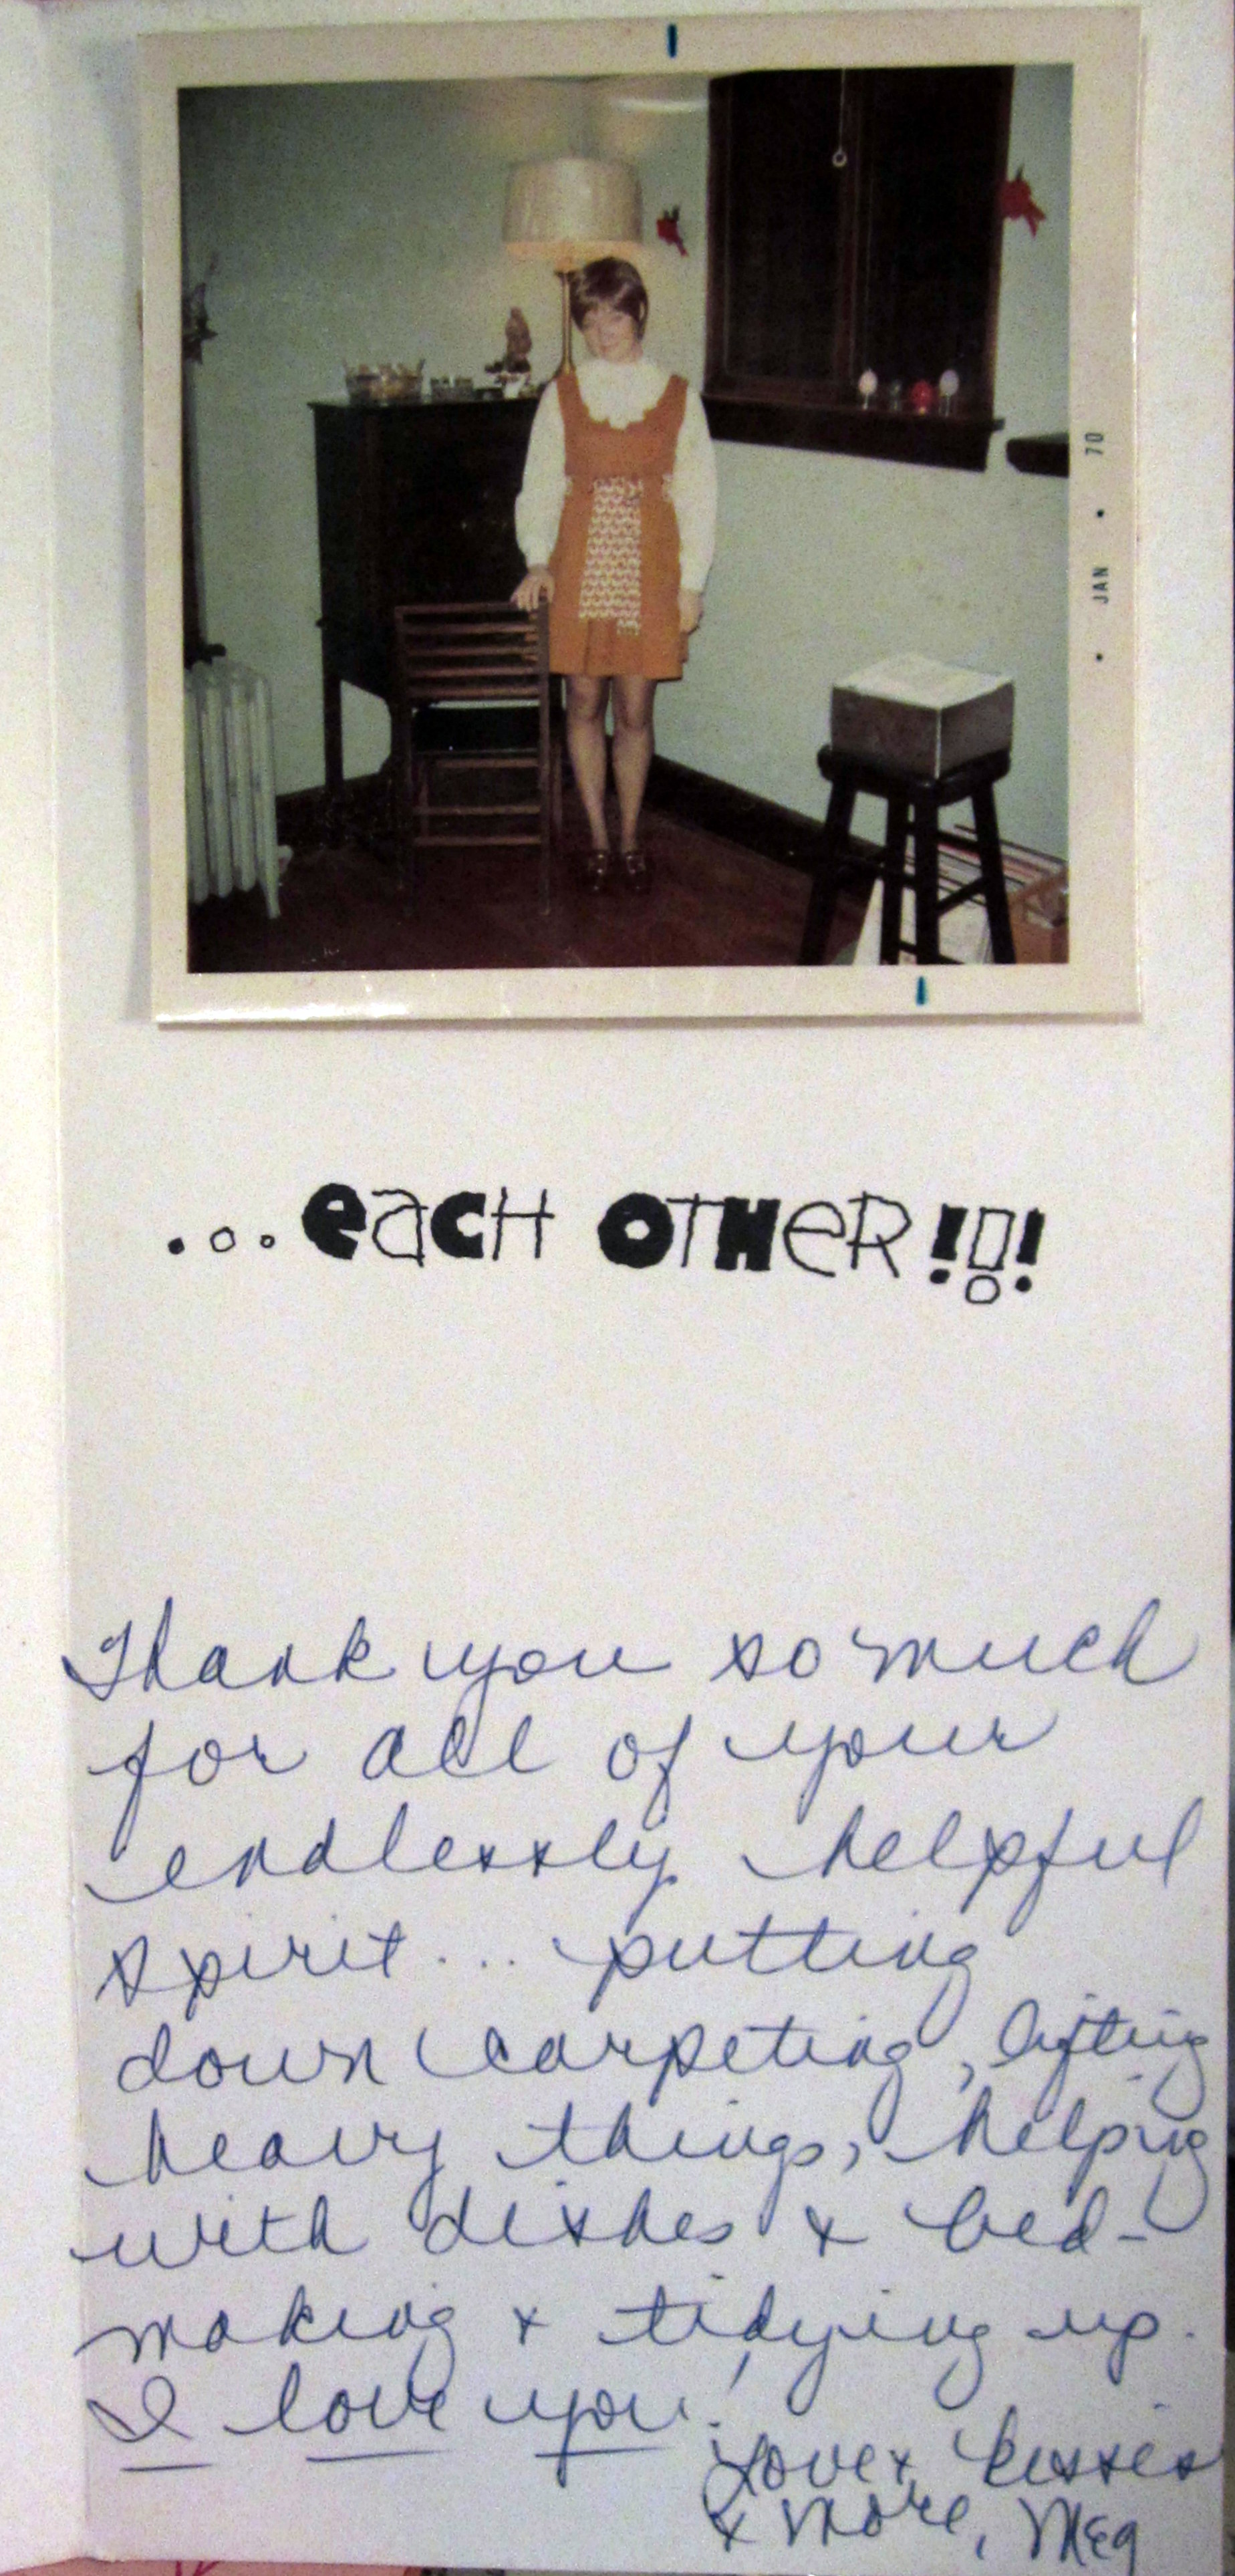 • JAN • 70
...each OTHeR!!!
Thank you so much
for all of your
endlessly helpful
spirit... putting
down carpeting, lifting
heavy things, helping
with dishes & bed-
making & tidying up.
I love you!
Love & kisses
& more, Meg